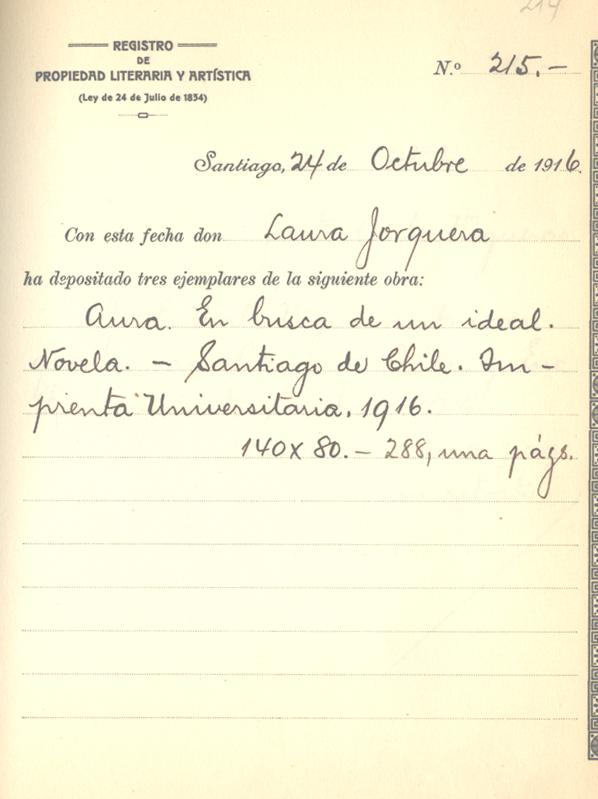 214
REGISTRO
DE
PROPIEDAD LITERARIA Y ARTÍSTICA
(Ley de 24 de Julio de 1834)
N.º 215.-
Santiago, 24 de Octubre de 1916.
Con esta fecha don Laura Jorquera
ha depositado tres ejemplares de la siguiente obra:
Aura. En busca de un ideal.
Novela. - Santiago de Chile. Im-
prenta Universitaria. 1916.
140 x 80. - 288, una págs.